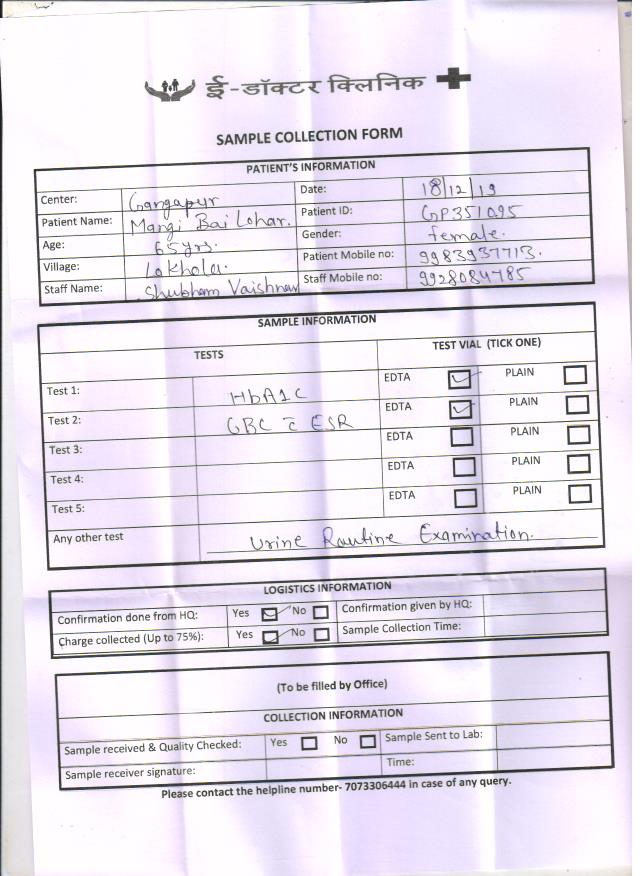 ई-डॉक्टर क्लिनिक
SAMPLE COLLECTION FORM
PATIENT'S INFORMATION
Center: Gangapur Date: 18/12/19
Patient Name: Mangi Bai Lohar. Patient ID: GP351095
Age: 65yrs. Gender: female.
Village: Lakhola. Patient Mobile no: 9983937713.
Staff Name: Shubham Vaishnav Staff Mobile no: 9928084785
SAMPLE INFORMATION
TESTS TEST VIAL (TICK ONE)
Test 1: HbA1C EDTA PLAIN
Test 2: CBC c̄ ESR EDTA PLAIN
Test 3: EDTA PLAIN
Test 4: EDTA PLAIN
Test 5: EDTA PLAIN
Any other test Urine Routine Examination.
LOGISTICS INFORMATION
Confirmation done from HQ: Yes No Confirmation given by HQ:
Charge collected (Up to 75%): Yes No Sample Collection Time:
(To be filled by Office)
COLLECTION INFORMATION
Sample received & Quality Checked: Yes No Sample Sent to Lab:
Sample receiver signature: Time:
Please contact the helpline number- 7073306444 in case of any query.